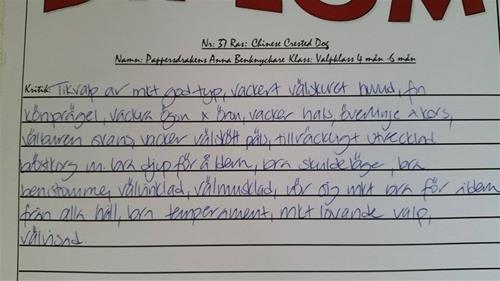 DIPLOM
Nr: 37 Ras: Chinese Crested Dog
Namn: Pappersdrakens Anna Benknyckare Klass: Valpklass 4 mån -6 mån
Kritik: Tikvalp av mkt god typ, vackert välskuret huvud, fin
könsprägel, vackra ögon x öron, vacker hals, överlinje x kors,
välburen svans, vacker välskött päls, tillräckligt utvecklad
bröstkorg m. bra djup för åldern, bra skulderläge, bra
benstomme, välvinklad, välmusklad, rör sig mkt bra för åldern
från alla håll, bra temperament, mkt lovande valp,
välvisad.